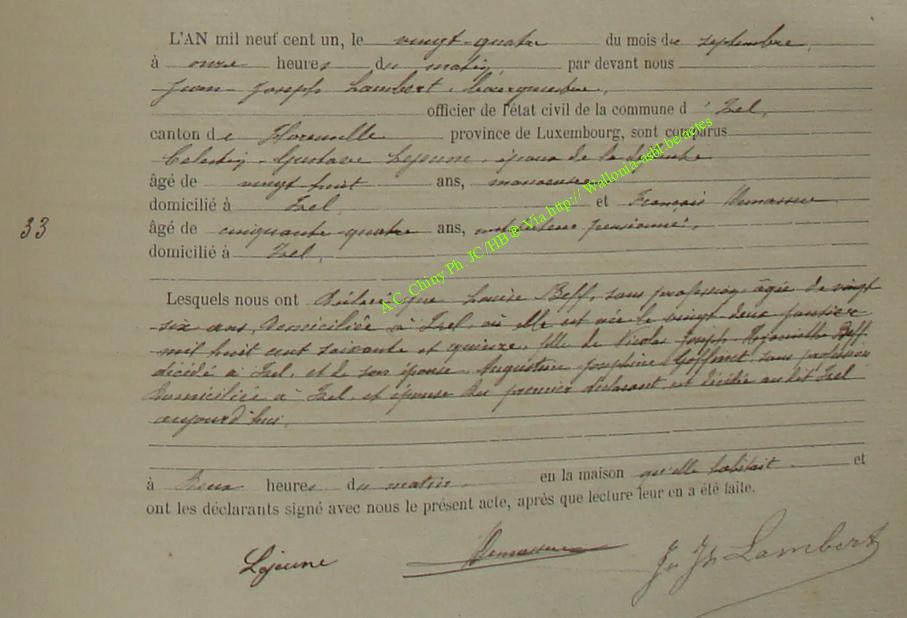 L'AN mil neuf cent un, le vingt-quatre du mois de septembre,
à onze heures du matin, par devant nous
Jean-Joseph Lambert, bourgmestre,
officier de l'état civil de la commune d'Izel,
canton de Florenville province de Luxembourg, sont comparus
Celestin-Gustave Lejeune, époux de la défunte
âgé de vingt huit ans, manoeuvre
domicilié à Izel, et François Demasure
33
âgé de cinquante quatre ans, instituteur pensionné,
domicilié à Izel,
A.C. Chiny Ph. JC /HB @ Via http:// Wallonia-asbl be/actes
Lesquels nous ont déclaré que Louise Beff, sans profession, âgée de vingt
six ans, domiciliée à Izel, où elle est née le vingt deux janvier
mil huit cent soixante et quinze, fille de Nicolas Joseph Hyacinthe Beff,
décédé à Izel, et de son épouse Augustine Josephine Goffinet, sans profession
domiciliée à Izel, et épouse du premier déclarant est décédée au dit Izel
aujourd'hui,
à deux heures du matin, en la maison qu'elle habitait et
ont les déclarants signé avec nous le présent acte, après que lecture leur en a été faite.
Lejeune
Jn Jh Lambert